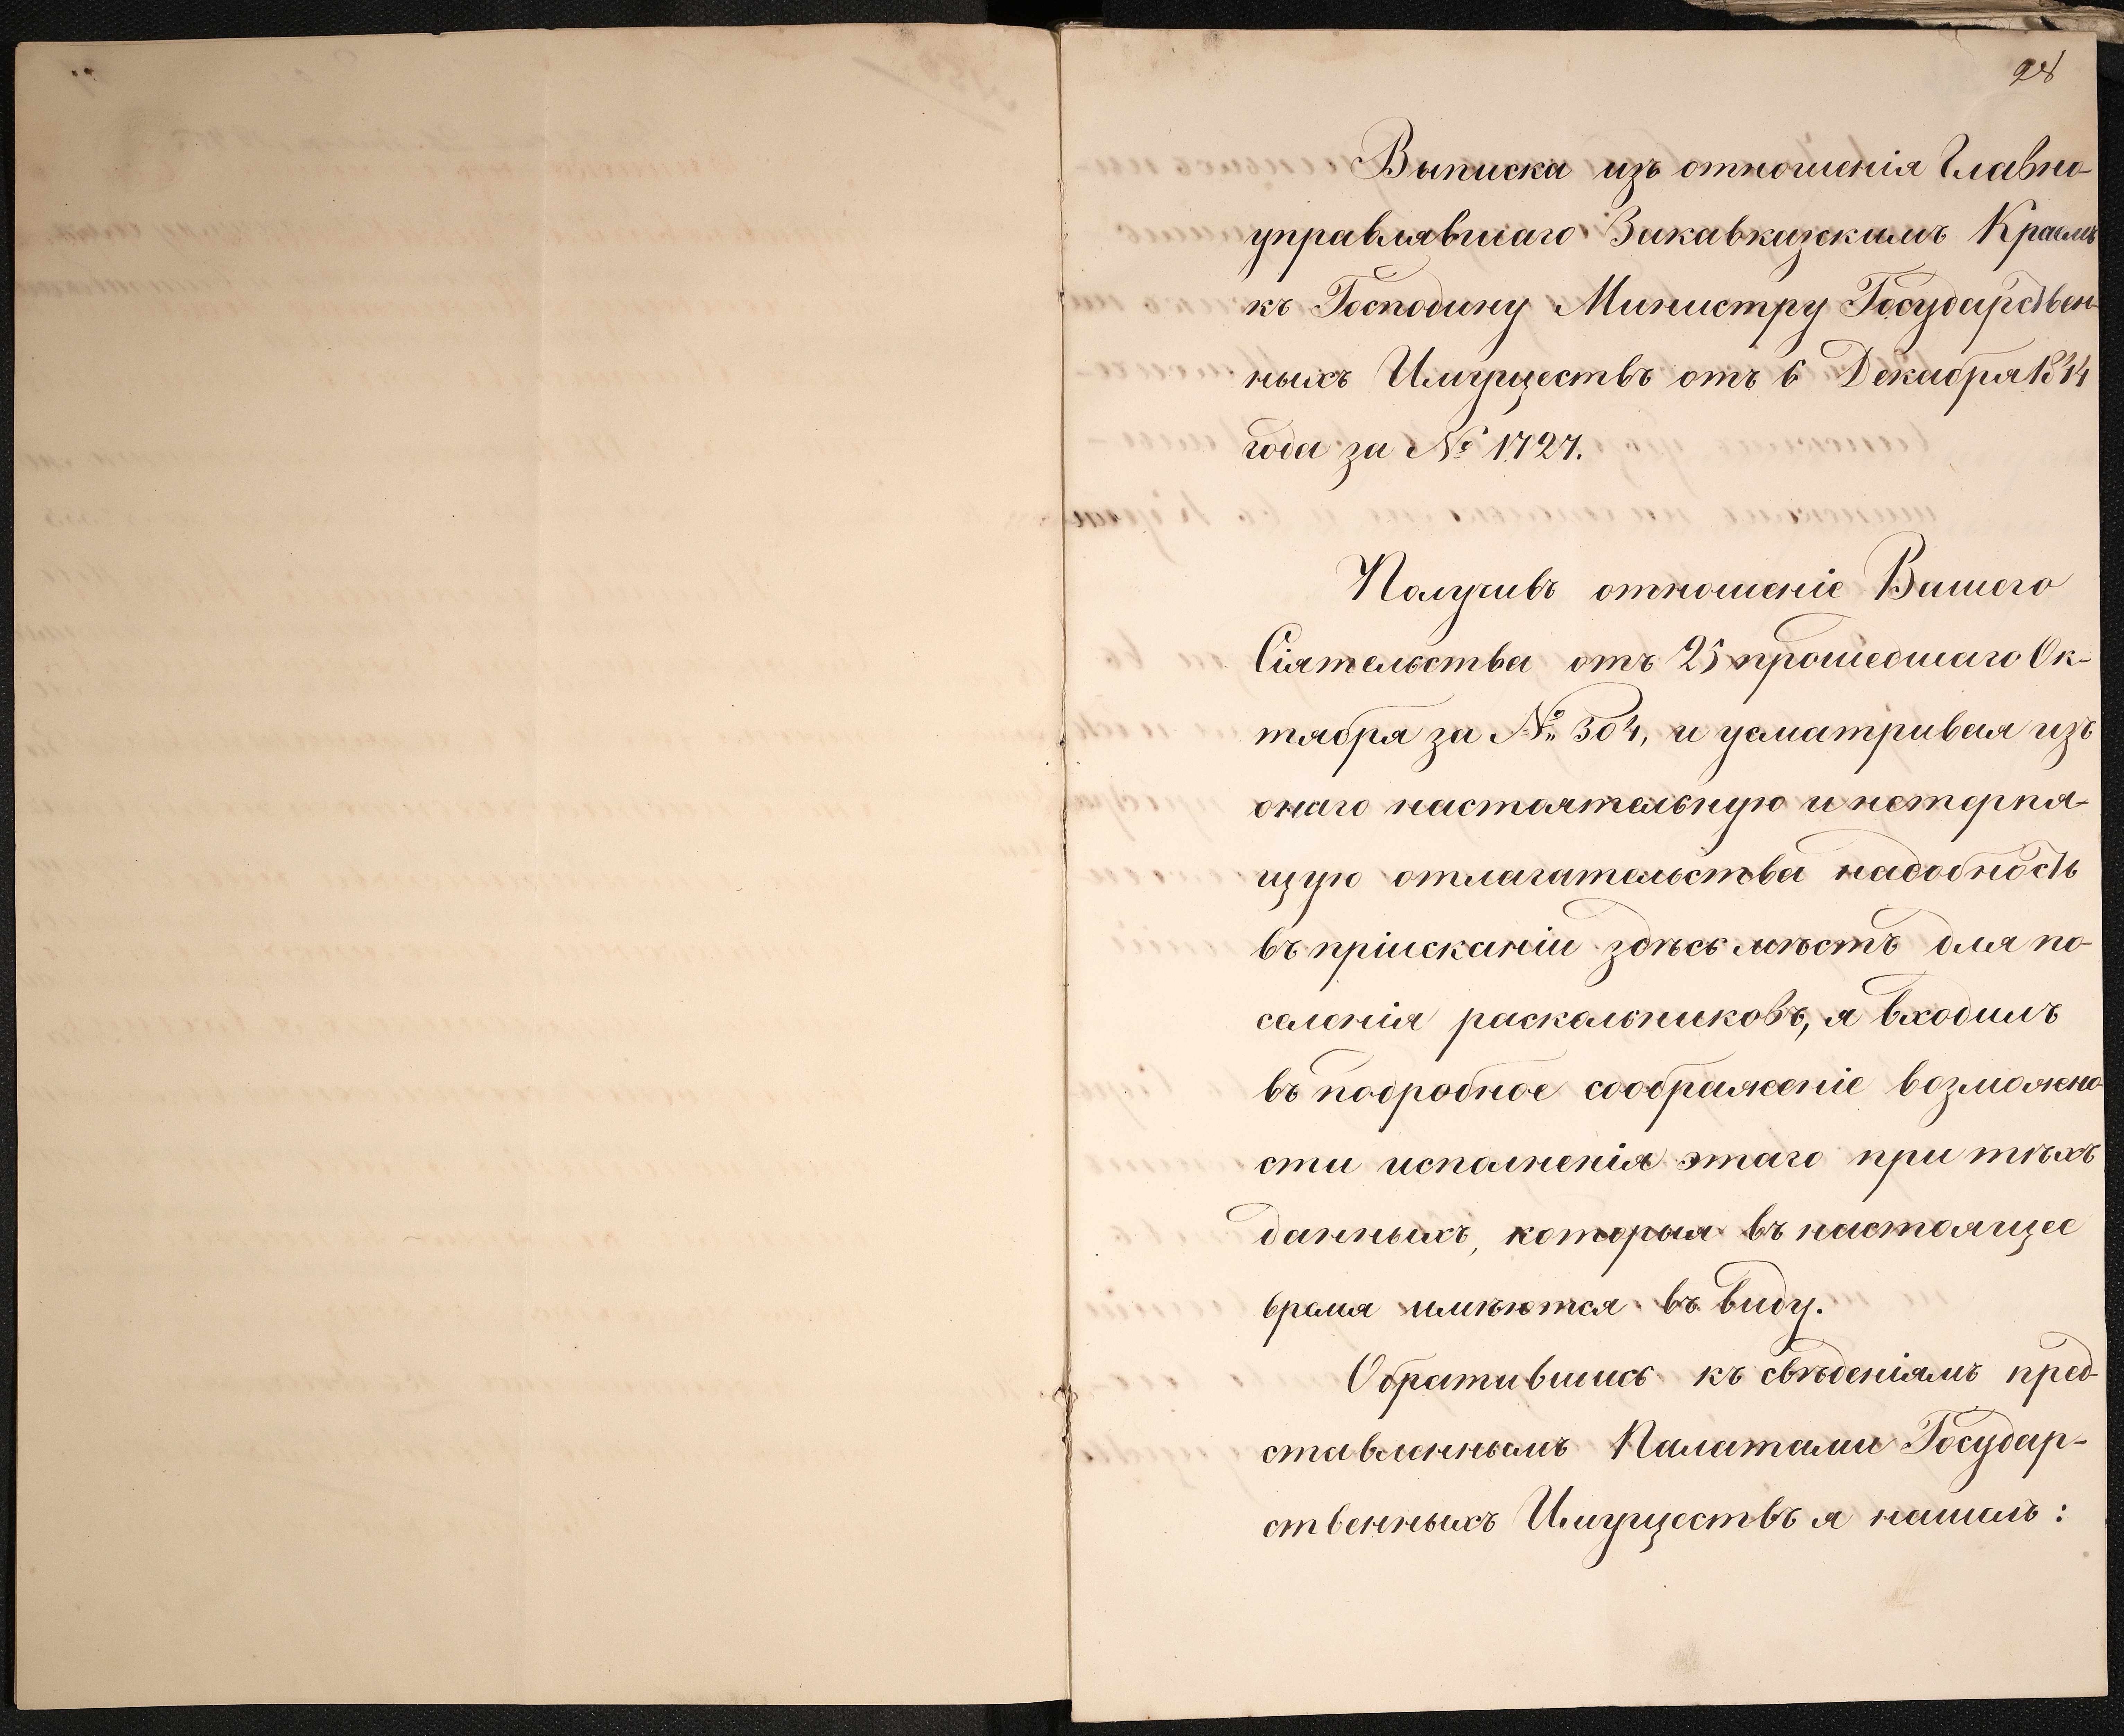 28
Выписка изъ отношенія Главно-
управлявшаго Закавказскимъ Краемъ
къ Господину Министру Государствен-
ныхъ Имуществъ отъ 6 Декабря 1844
года за № 1727.
Получивъ отношеніе Вашего
Сіятельства отъ 25 прошедшаго Ок-
тября за № 304, и усматривая изъ
онаго настоятельную и нетерпя-
щую отлагательства надобность
въ пріисканіи здѣсь мѣстъ для по-
селенія раскольниковъ, я входилъ
въ подробное соображеніе возможно-
сти исполненія этаго при тѣхъ
данныхъ, которыя въ настоящее
время имѣются въ виду.
Обратившись къ свѣденіямъ пред-
ставленнымъ Палатами Государ-
ственныхъ Имуществъ я нашелъ: